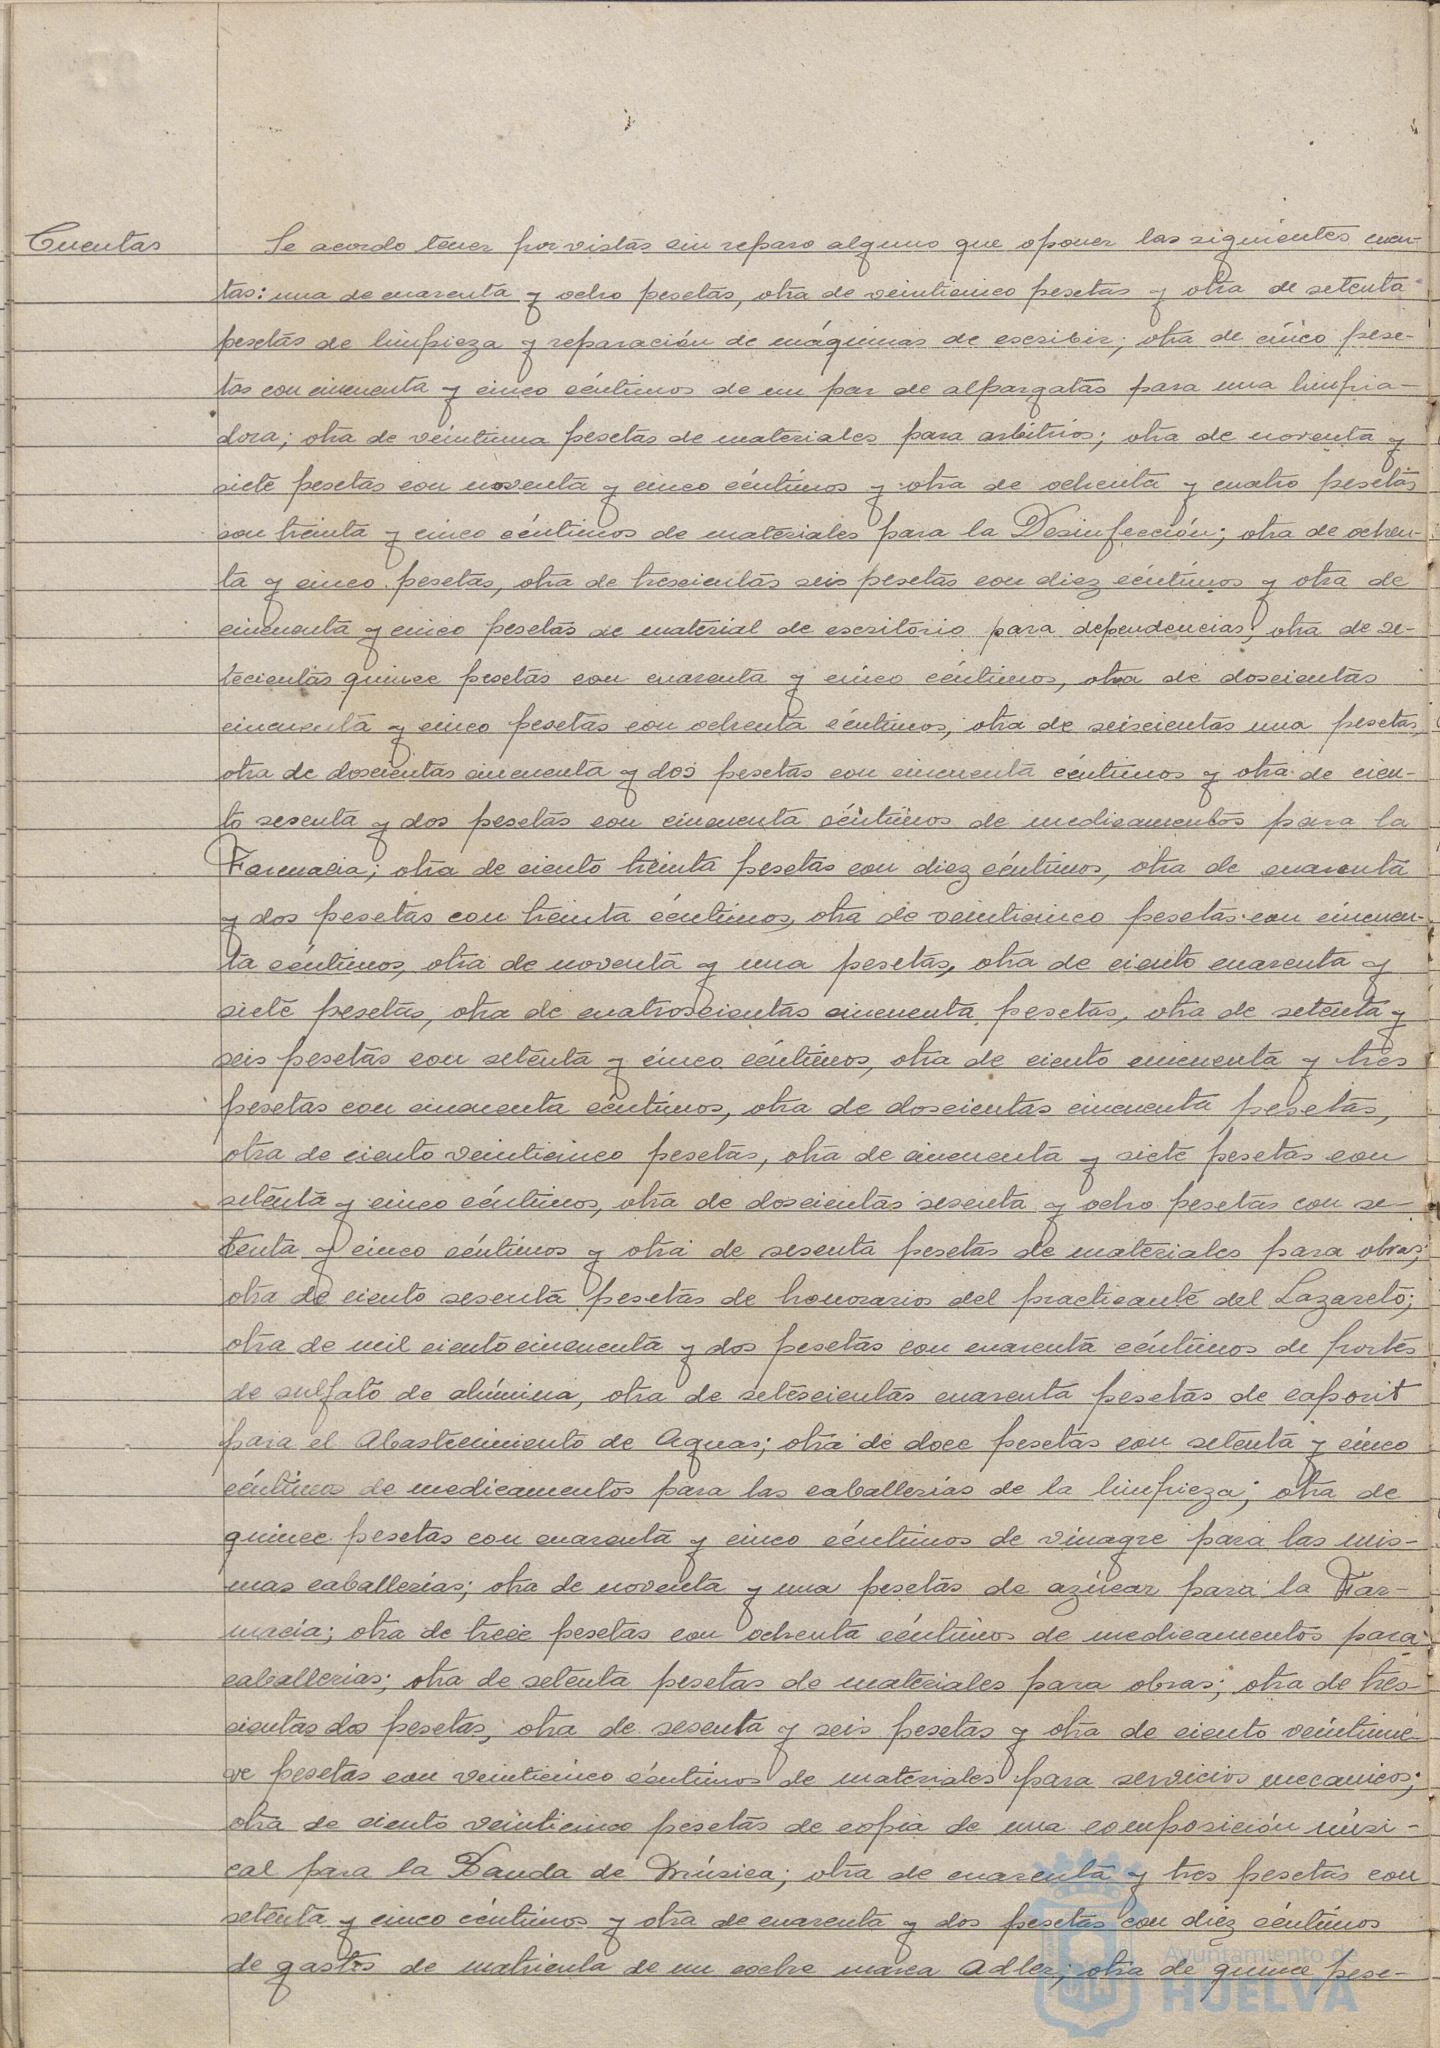 Cuentas
Se acordo tener por vistas sin reparo alguno que oponer las siguientes cuen-
tas: una de cuarenta y ocho pesetas, otra de veinticinco pesetas y otra de setenta
pesetas de limpieza y reparación de máquinas de escribir; otra de cinco pese-
tas con cincuenta y cinco céntimos de un par de alpargatas para una limpia-
dora; otra de veintiuna pesetas de materiales para arbitrios; otra de noventa y
siete pesetas con noventa y cinco céntimos y otra de ochenta y cuatro pesetas
con treinta y cinco céntimos de materiales para la Desinfección; otra de ochen-
ta y cinco pesetas, otra de trescientas seis pesetas con diez céntimos y otra de
cincuenta y cinco pesetas de material de escritorio para dependencias; otra de se-
tecientas quince pesetas con cuarenta y cinco céntimos, otra de doscientas
cincuenta y cinco pesetas con ochenta céntimos, otra de seiscientas una pesetas,
otra de doscientas cincuenta y dos pesetas con cincuenta céntimos y otra de cien-
to sesenta y dos pesetas con cincuenta céntimos de medicamentos para la
Farmacia; otra de ciento treinta pesetas con diez céntimos, otra de cuarenta
y dos pesetas con treinta céntimos, otra de veinticinco pesetas con cincuen-
ta céntimos, otra de noventa y una pesetas, otra de ciento cuarenta y
siete pesetas, otra de cuatroscientas cincuenta pesetas, otra de setenta y
seis pesetas con setenta y cinco céntimos, otra de ciento cincuenta y tres
pesetas con cincuenta céntimos, otra de doscientas cincuenta pesetas,
otra de ciento veinticinco pesetas, otra de cincuenta y siete pesetas con
setenta y cinco céntimos, otra de doscientas sesenta y ocho pesetas con se-
tenta y cinco céntimos y otra de sesenta pesetas de materiales para obras;
otra de ciento sesenta pesetas de honorarios del practicante del Lazareto;
otra de mil ciento cincuenta y dos pesetas con cuarenta céntimos de portes
de sulfato de alúmina, otra de setescientas cuarenta pesetas de caporit
para el Abastecimiento de Aguas; otra de doce pesetas con setenta y cinco
céntimos de medicamentos para las caballerías de la limpieza; otra de
quince pesetas con cuarenta y cinco céntimos de vinagre para las mis-
mas caballerías; otra de noventa y una pesetas de azúcar para la Far-
macia; otra de trece pesetas con ochenta céntimos de medicamentos para
caballerias; otra de setenta pesetas de materiales para obras; otra de tres-
cientas dos pesetas, otra de sesenta y seis pesetas y otra de ciento veintinue-
ve pesetas con veinticinco céntimos de materiales para servicios mecanicos;
otra de ciento veinticinco pesetas de copia de una composición músi-
cal para la Banda de Música; otra de cuarenta y tres pesetas con
setenta y cinco céntimos y otra de cuarenta y dos pesetas con diez céntimos
de gastos de matricula de un coche marca Adler; otra de quince pese-
Ayuntamiento de
HUELVA